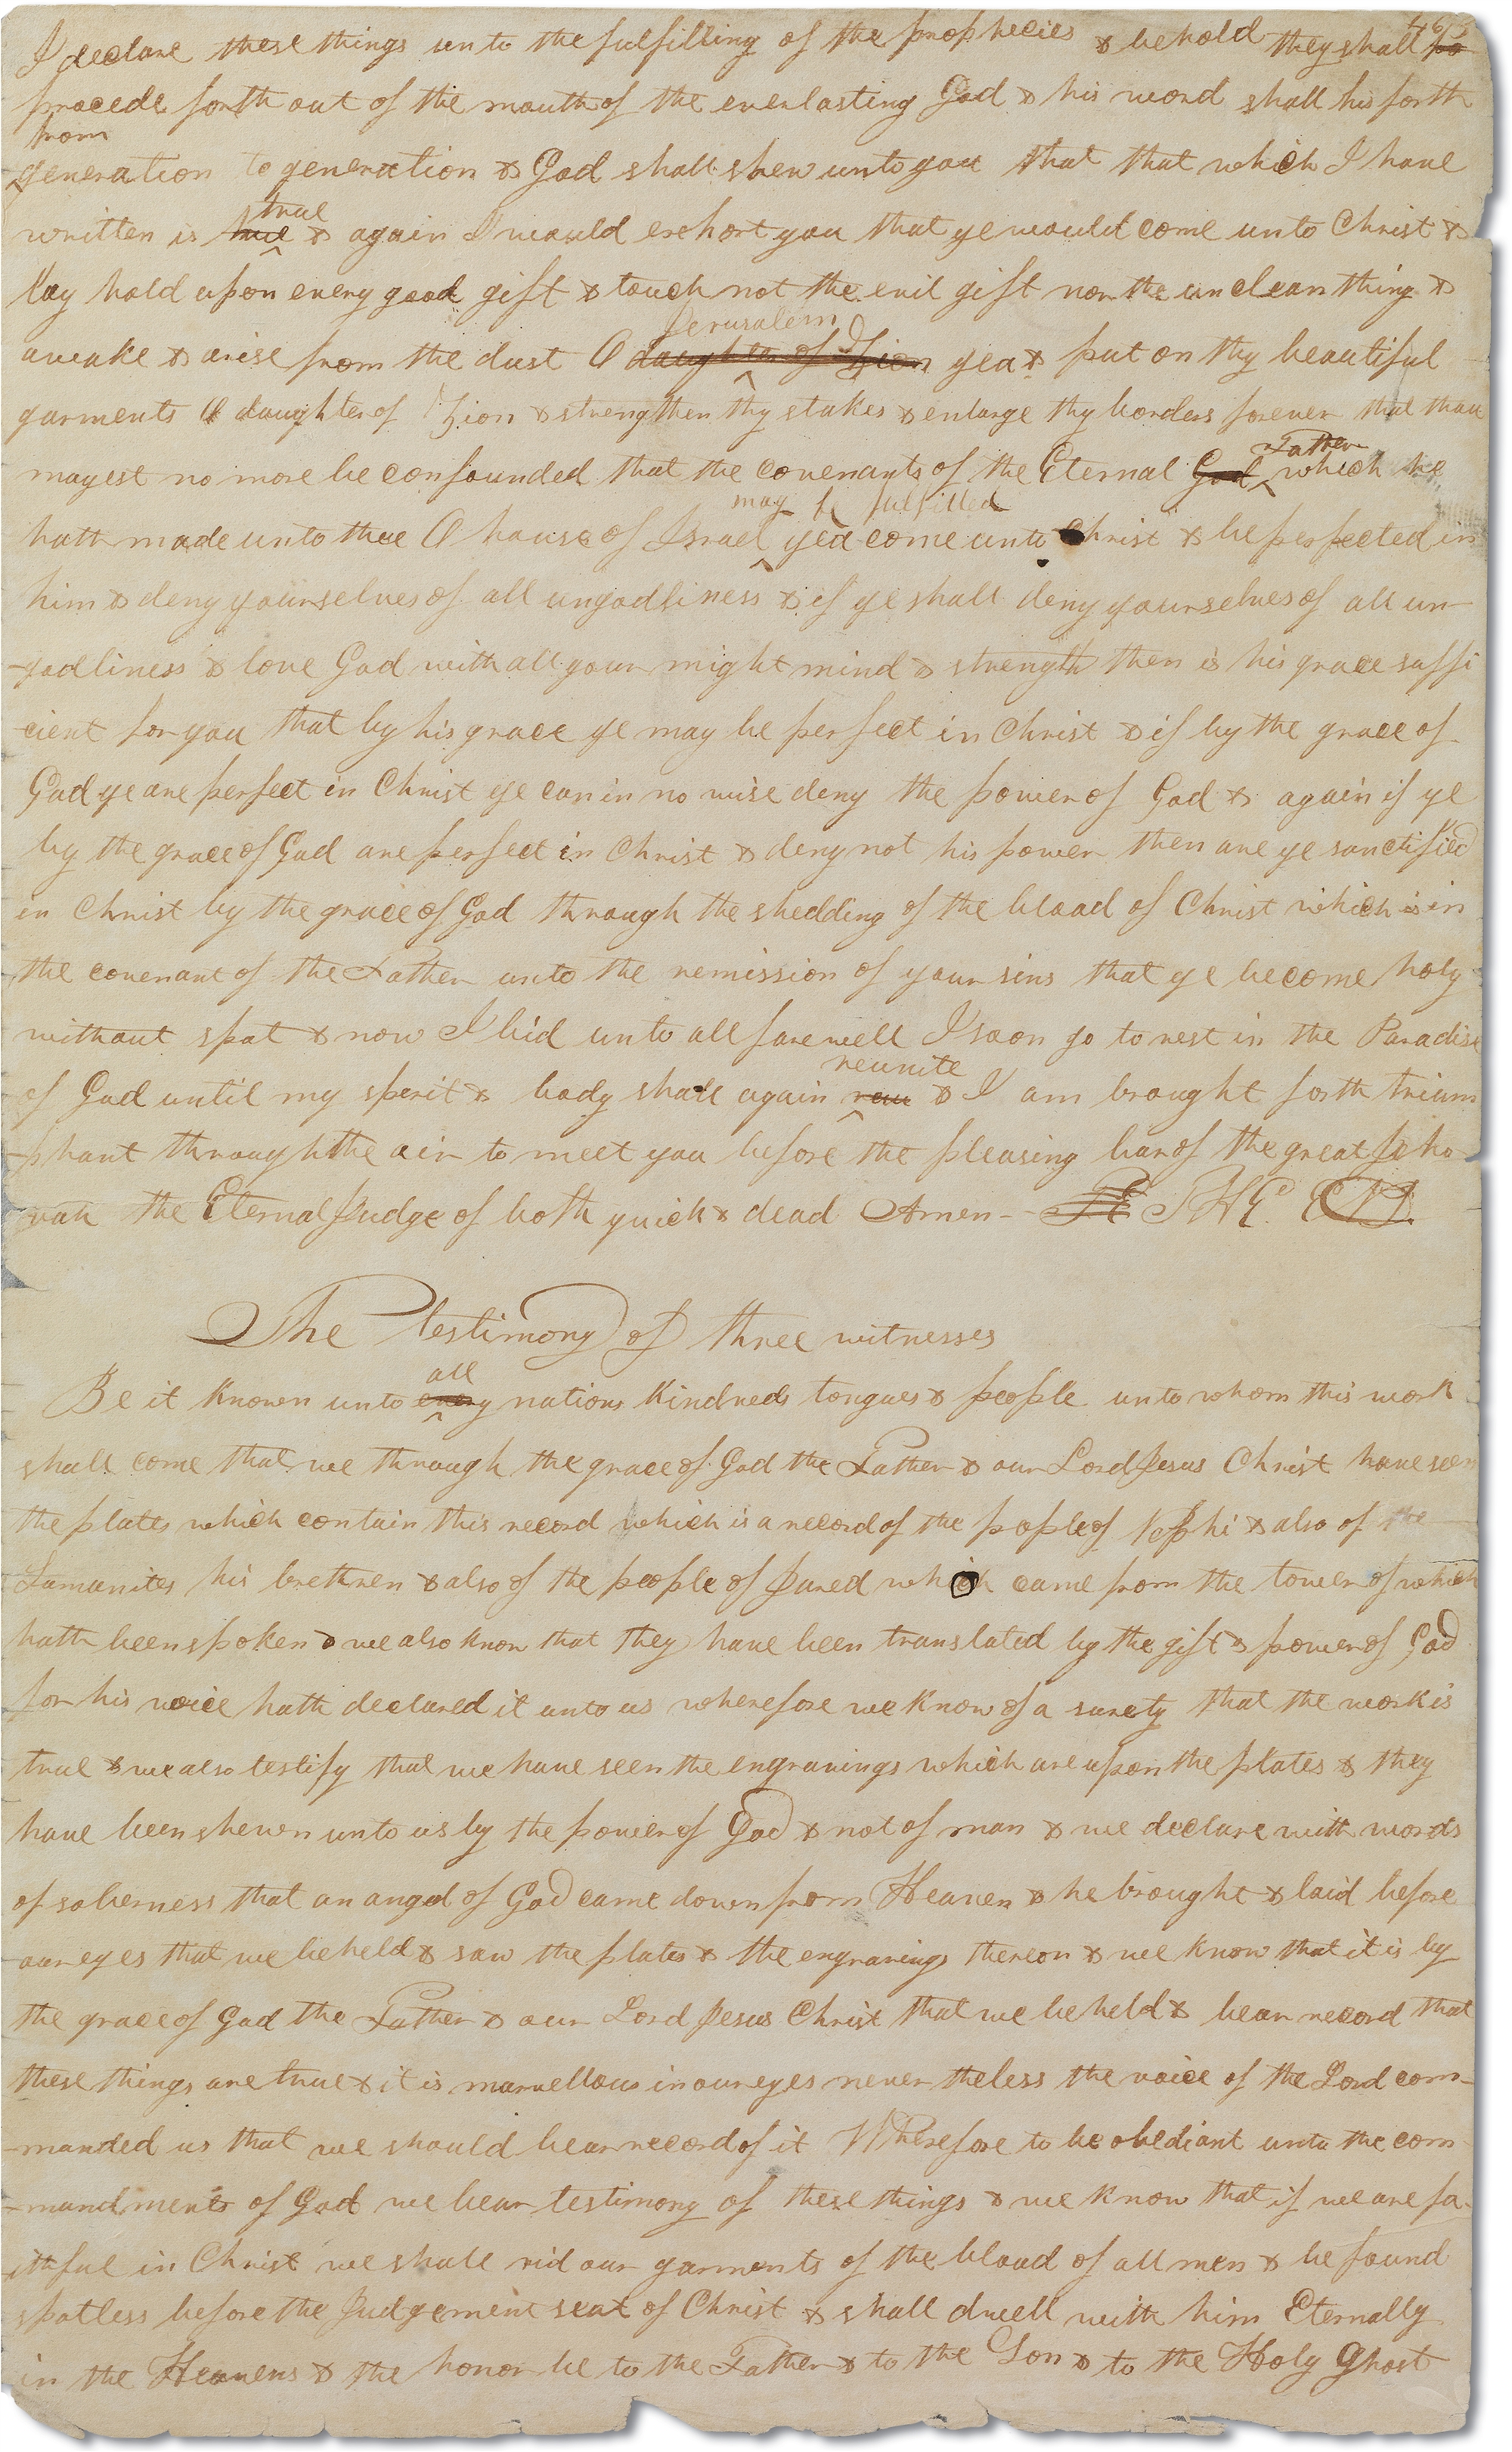 463
I declare these things unto the fulfilling of the prophecies & behold they shall
procede forth out of the mouth of the everlasting God & his word shall his forth
from
generation to generation & God shall shew unto you that that which I have
true
written is true & again I would exhort you that ye would come unto Christ &
lay hold upon every good gift & touch not the evil gift nor the unclean thing &
Jerusalem
awake & arise from the dust O daughter of Zion yea & put on thy beautiful
garments O daughter of Zion & strengthen thy stakes & enlarge thy borders forever that thou
Father
mayest no more be confounded that the covenants of the Eternal God which he
may be fulfilled
hath made unto thee O house of Israel yea come unto Christ & be perfected in
him & deny yourselves of all ungodliness & if ye shall deny yourselves of all un-
-godliness & love God with all your might mind & strength then is his grace suffi
-cient for you that by his grace ye may be perfect in Christ & if by the grace of
God ye are perfect in Christ ye can in no wise deny the power of God & again if ye
by the grace of God are perfect in Christ & deny not his power then are ye sanctified
in Christ by the grace of God through the shedding of the blood of Christ which is in
the covenant of the Father unto the remission of your sins that ye become holy
without spot & now I bid unto all farewell I soon go to rest in the Paradise
reunite
of God until my spirit & body shall again & I am brought forth trium
-phant through the air to meet you before the pleasing bar of the great Jeho-
-vah the Eternal Judge of both quick & dead Amen— THE END.
The Testimony of three witnesses
all
Be it known unto every nations kindreds tongues & people unto whom this work
shall come that we through the grace of God the Father & our Lord Jesus Christ have seen
the plates which contain this record which is a record of the people of Nephi & also of the
Lamanites his brethren & also of the people of Jared which came from the tower of which
hath been spoken & we also know that they have been translated by the gift & power of God
for his voice hath declared it unto us wherefore we know of a surety that the work is
true & we also testify that we have seen the engravings which are upon the plates & they
have been shewn unto us by the power of God & not of man & we declare with words
of soberness that an angel of God came down from Heaven & he brought & laid before
our eyes that we beheld & saw the plates & the engravings thereon & we know that it is by
the grace of God the Father & our Lord Jesus Christ that we beheld & bear record that
these things are true & it is marvellous in our eyes never theless the voice of the Lord com-
-manded us that we should bear record of it Wherefore to be obediant unto the com-
-mandments of God we bear testimony of these things & we know that if we are fa-
ithful in Christ we shall rid our garments of the blood of all men & be found
spotless before the Judgement seat of Christ & shall dwell with him Eternally
in the Heavens & the honor be to the Father & to the Son & to the Holy Ghost